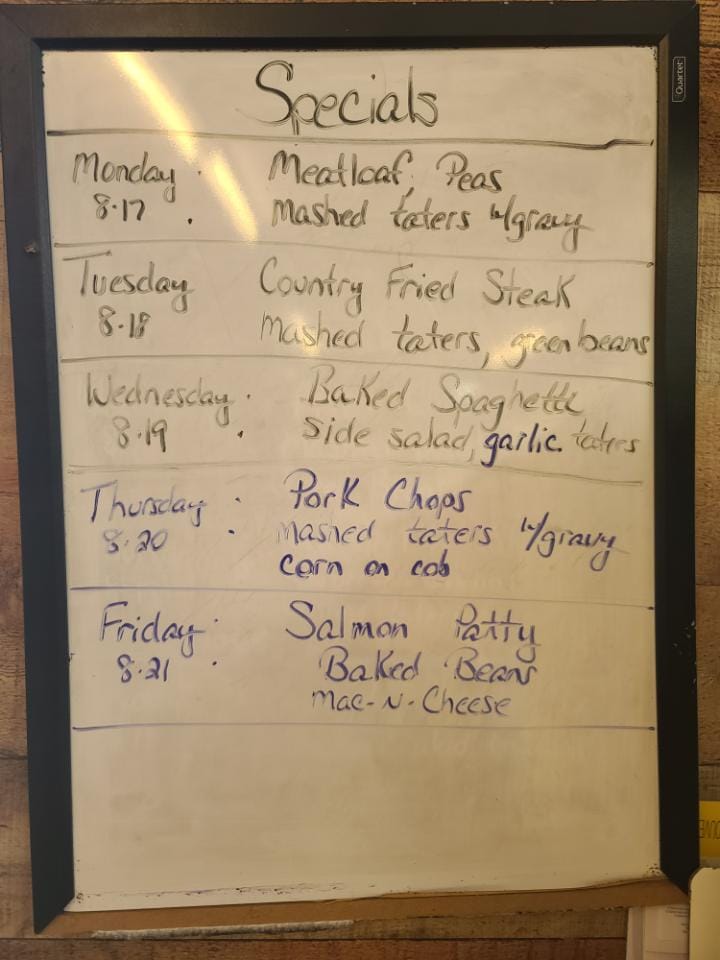 Quartet
Specials
Monday · Meatloaf, Peas
8·17 · Mashed taters w/gravy
Tuesday Country Fried Steak
8·18 Mashed taters, green beans
Wednesday · Baked Spaghetti
8·19 · Side salad, garlic taters
Thursday · Pork Chops
8·20 · Mashed taters w/gravy
corn on cob
Friday · Salmon Patty
8·21 · Baked Beans
Mac-N-Cheese